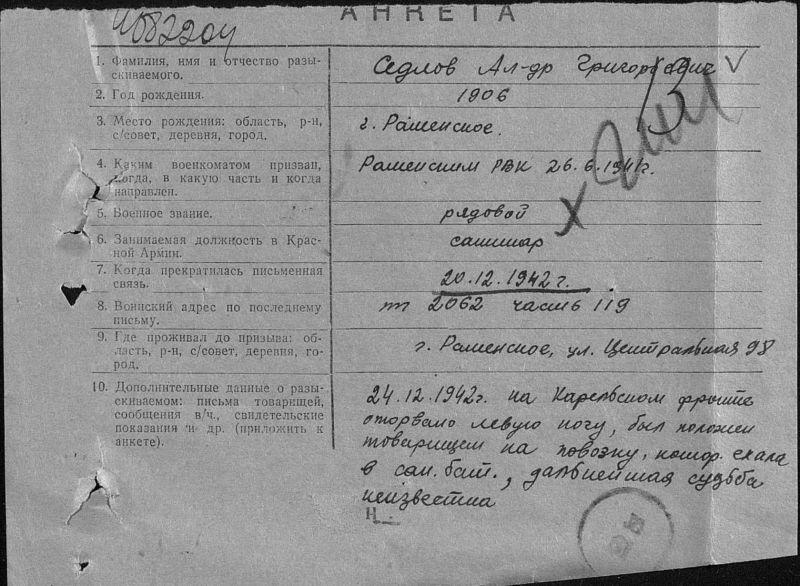 И082204
АНКЕТА
1. Фамилия, имя и отчество разы-
скиваемого.
Седлов Ал-др Григорьевич
2. Год рождения.
1906
3. Место рождения: область, р-н,
с/совет, деревня, город.
г. Раменское.
4. Каким военкоматом призван,
когда, в какую часть и когда
направлен.
Раменским РВК 26.6.1941г.
5. Военное звание.
рядовой
6. Занимаемая должность в Крас-
ной Армии.
санитар
7. Когда прекратилась письменная
связь.
20.12.1942г.
8. Воинский адрес по последнему
письму.
пп 2062 часть 119
9. Где проживал до призыва: об-
ласть, р-н, с/совет, деревня, го-
род.
г. Раменское, ул. Центральная 98
10. Дополнительные данные о разы-
скиваемом: письма товарищей,
сообщения в/ч., свидетельские
показания и др. (приложить к
анкете).
24.12.1942г. на Карельском фронте
оторвало левую ногу, был положен
товарищем на повозку, котор. ехала
в сан. бат., дальнейшая судьба
неизвестна
Н